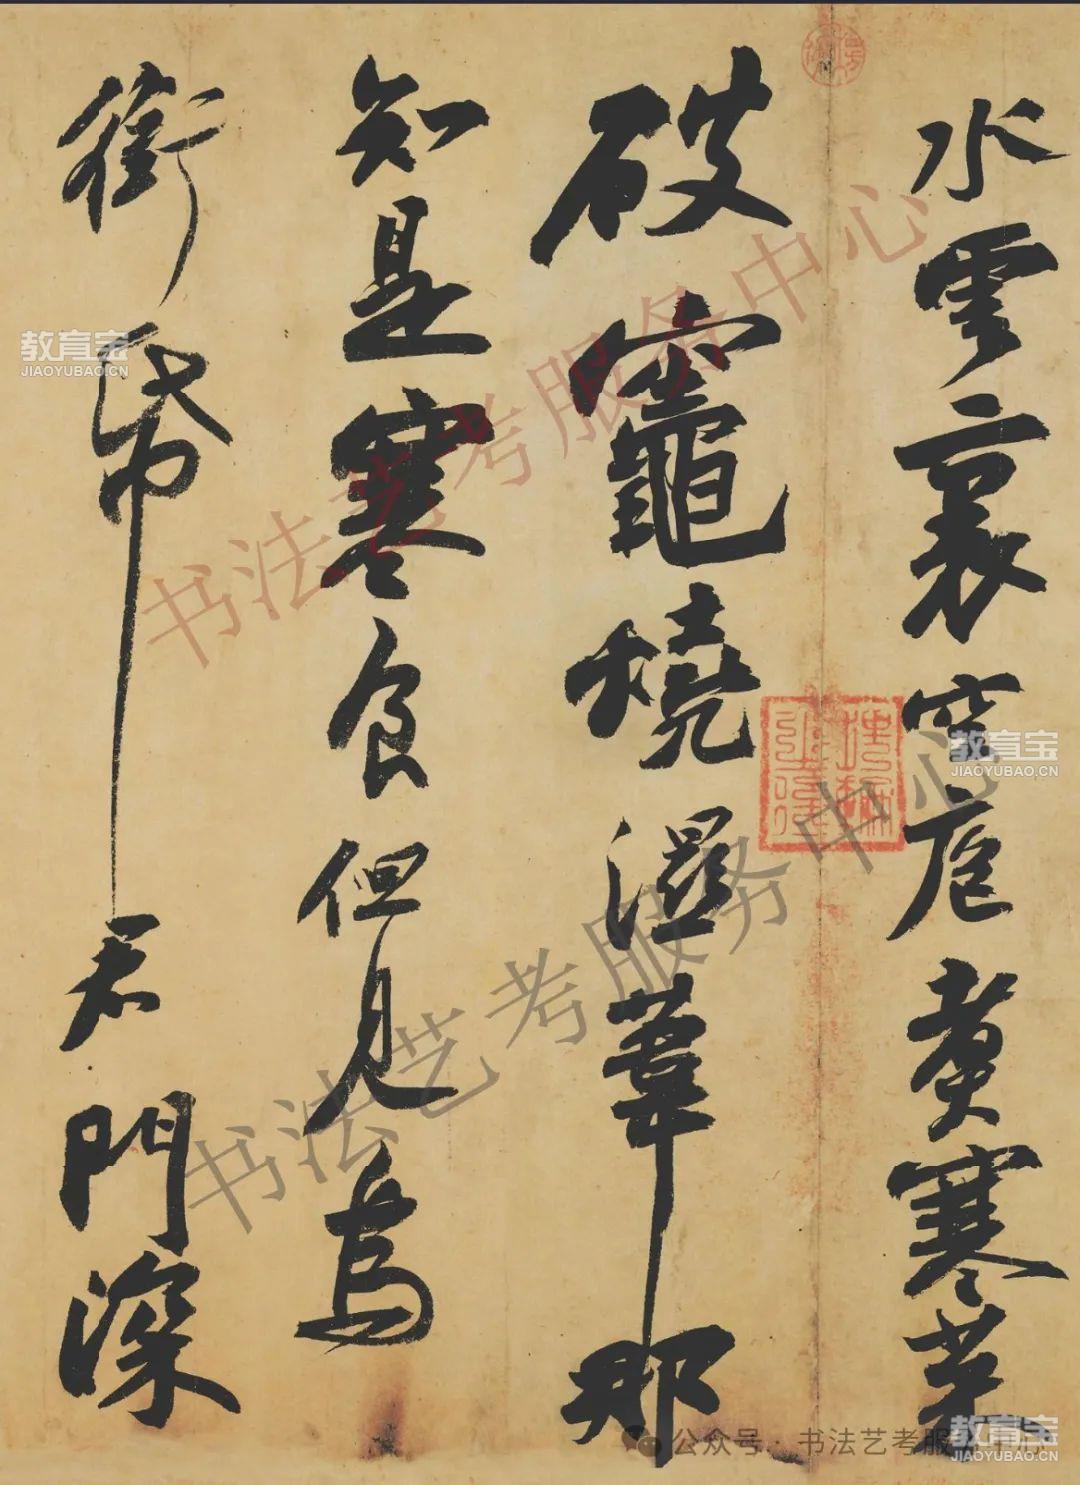 水雲裏空庖煮寒菜
破竈燒濕葦那
知是寒食但見烏
銜帋君門深
书法艺考服务中心
书法艺考服务中心
教育宝
JIAOYUBAO.CN
教育宝
JIAOYUBAO.CN
教育宝
JIAOYUBAO.CN
公众号·书法艺考服